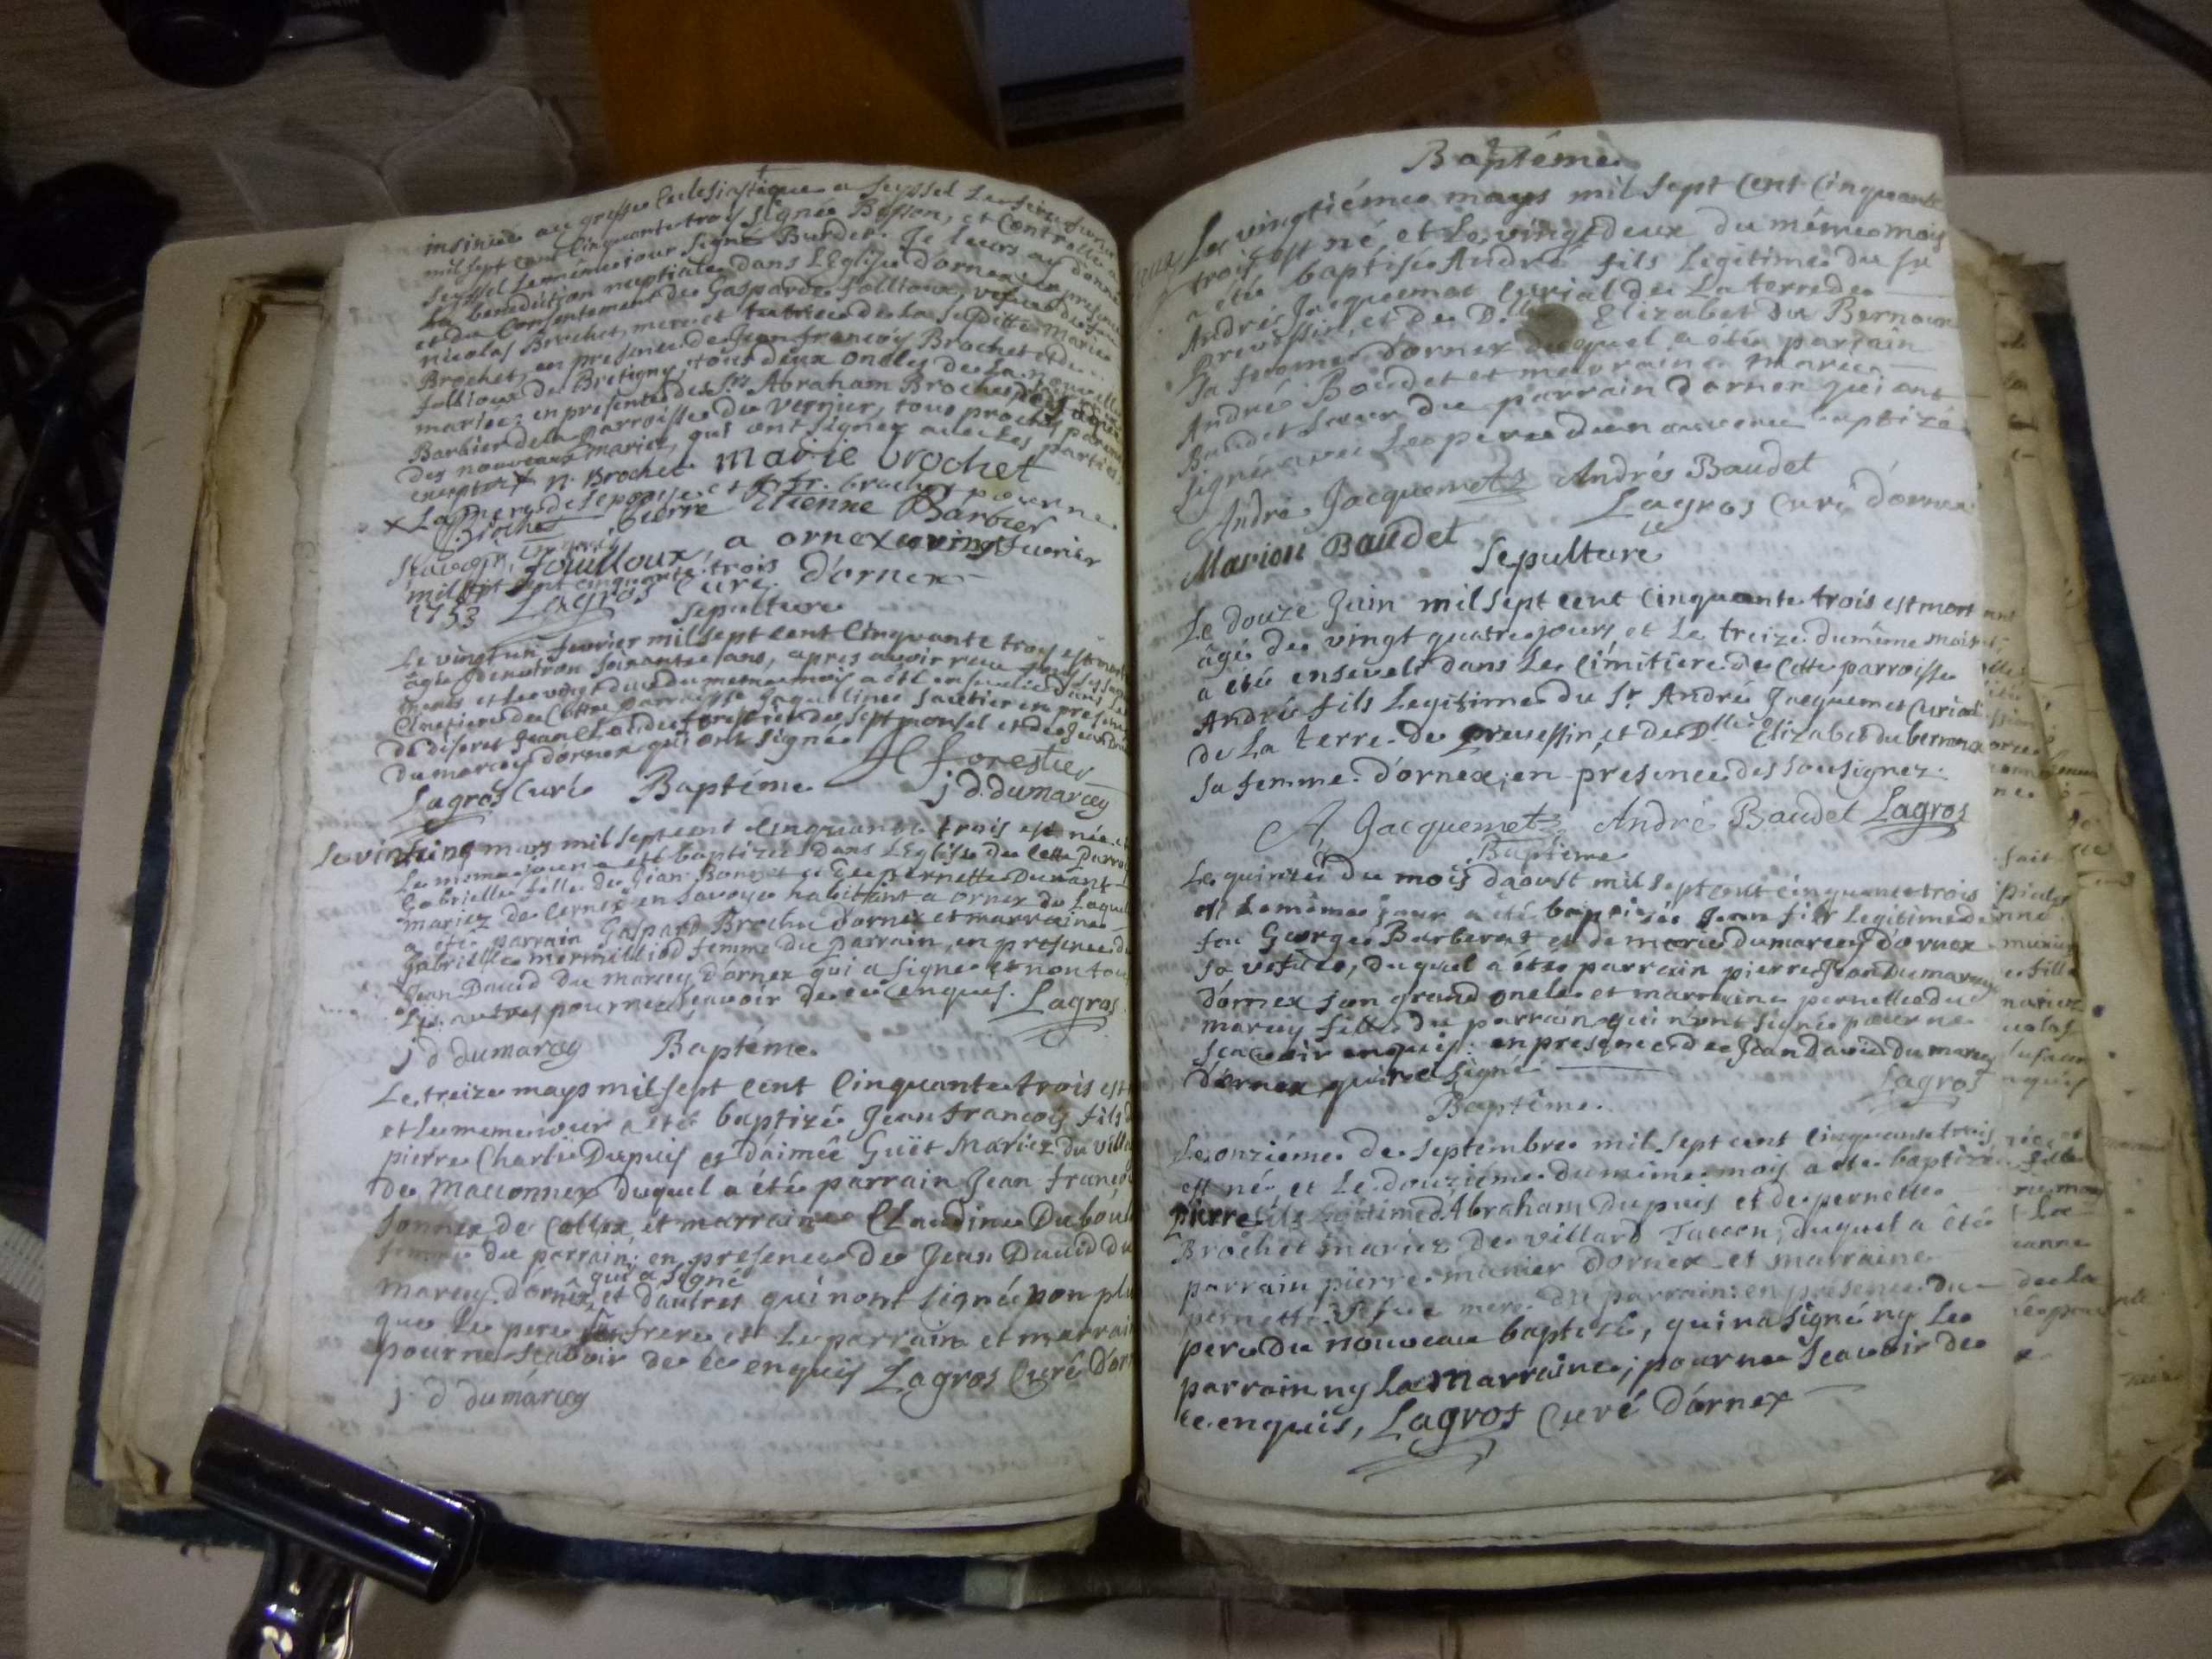 insinué au greffe Ecclesiastique a Seyssel Le
mil sept cent Cinquante troy signé Bosson, et Controllé a
Seyssel Le même jour signé Burdet. Je leurs ay donné
La benediction nuptiale dans L'Eglise d'ornex en presence
et du Consentement de Gasparde follioux, veuve de feu
nicolas Brochet, mere et tutrice de La Susditte Marie
Brochet, en presence de Jean francois Brochet et de
follioux de Bretigny, tous deux oncles de La nouvelle
mariée: en presence des Srs Abraham Brochet
Barbier de la parroisse de Vernier, tous proches parents
des nouveaux mariez, qui ont signez avec les parties
excepté x n. Brochet marie brochet
x La mere de l'epouse et fr. brochet pour ne
Brochet pierre Etienne Barbier
Scavoir, enquis foulloux, a ornex ce vingt fevrier
mil sept cent cinquante trois
1753 Lagros Curé d'ornex
Sepulture
Le vingt un fevrier mil sept cent Cinquante troy est morte
âgée d'environ soixante ans, apres avoir receu tous ses sacre
ments et Le vingt deux du meme mois a été ensevelie dans Le
Cimetiere de Cette parroisse Jaqueline Sautier en presence
de discret Jean Cl. de forestier de Septmonsel et de Jean David
Dumarcey d'ornex qui ont signé. forestier
Lagros Curé Baptéme j d. dumarcey
Le vint cinq mars mil sept cent cinquante trois est née et
Le meme jour a été baptizée dans L'Eglise de Cette Parroi
Gabrielle fille de Jean Bonnet et de pernette Durant
mariez de Cernex en Savoye habittant a ornex de Laquel
a été parrain Gaspard Brochet d'ornex et marraine
Gabrielle mermilliod femme du Parrain, en presence de
Jean David Du marcey d'ornex qui a signé et non tou
Les autres pour ne scavoir de ce enquis. Lagros
j d dumarcey Baptéme
Le treize mays mil sept cent Cinquante trois est
et Le meme jour a été baptizé Jean francois fils d
pierre Charle Dupuis et d'aimêe Guët Mariez du villa
de Maconnex duquel a été parrain Jean francois
Sonnex de Collex, et marraine Claudine Dubou
femme du parrain: en presence de Jean David du
qui a signé
marcey d'ornex, et d'autres qui n'ont signé, non plu
que Le pere frere et Le parrain et marrain
pour ne Scavoir de ce enquis Lagros Curé D'orn
j d dumárcey
Baptême
Le vingtiéme mays mil sept Cent Cinquante
trois est né et Le vingt deux du même mois
a été baptisé André fils Legitime du Sr
André Jacquemet Curial de La terre de
Prevessin, et de Dlle Elizabet du Bernoux
Sa femme d'ornex duquel a été parrain
André Baudet et marraine Marie
Baudet Soeur du parrain d'ornex qui ont
signé avec Le pere du nouveau baptizé
André Jacquemet Andrés Baudet
Lagros Curé d'ornex
Marion Baudet
Sepulture
Le Douze Juin mil sept cent Cinquante trois est mort
âgé de vingt quatre jours, et Le treize du même mois
a été enseveli dans Le Cimitiere de Cette parroisse
André fils Legitime du Sr André Jacquemet Curial
de La terre de prevessin, et de Dlle Elizabet du bernoux
sa femme d'ornex, en presence des Sousignez
A, Jacquemet André Baudet Lagros
Baptéme
Le quinze du mois d'aoust mil sept cent cinquante trois
et Le même jour a été baptisé Jean fils Legitime de
feu George Barberat et de marie dumarcey d'ornex
sa vefve, duquel a été parrain pierre Jean Dumarcey
d'ornex son grand oncle et marraine pernette du
marcey fille du parrain, qui n'ont signé pour ne
scavoir enquis: en presence de Jean David du marcey
d'ornex qui a signé
Lagros
Baptême
Le onziéme de Septembre mil sept cent Cinquante trois
est né, et Le douziéme du même mois a été baptizé
pierre fils Légitime d'Abraham Dupuis et de pernette
Brochet mariez de villard Tacon, duquel a été
parrain pierre munier d'ornex et marraine
pernette mere du parrain: en presence du
pere du nouveau baptisé, qui n'a signé ny Le
parrain ny La Marraine, pour ne Scavoir de
ce enquis, Lagros Curé D'ornex